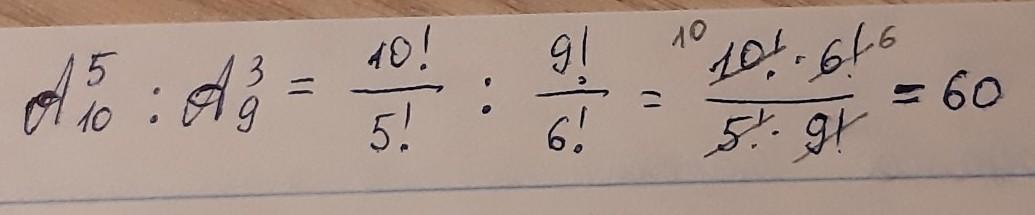 A₁₀⁵ : A₉³ = 10!/5! : 9!/6! = 10 10! · 6! 6/5! · 9! = 60